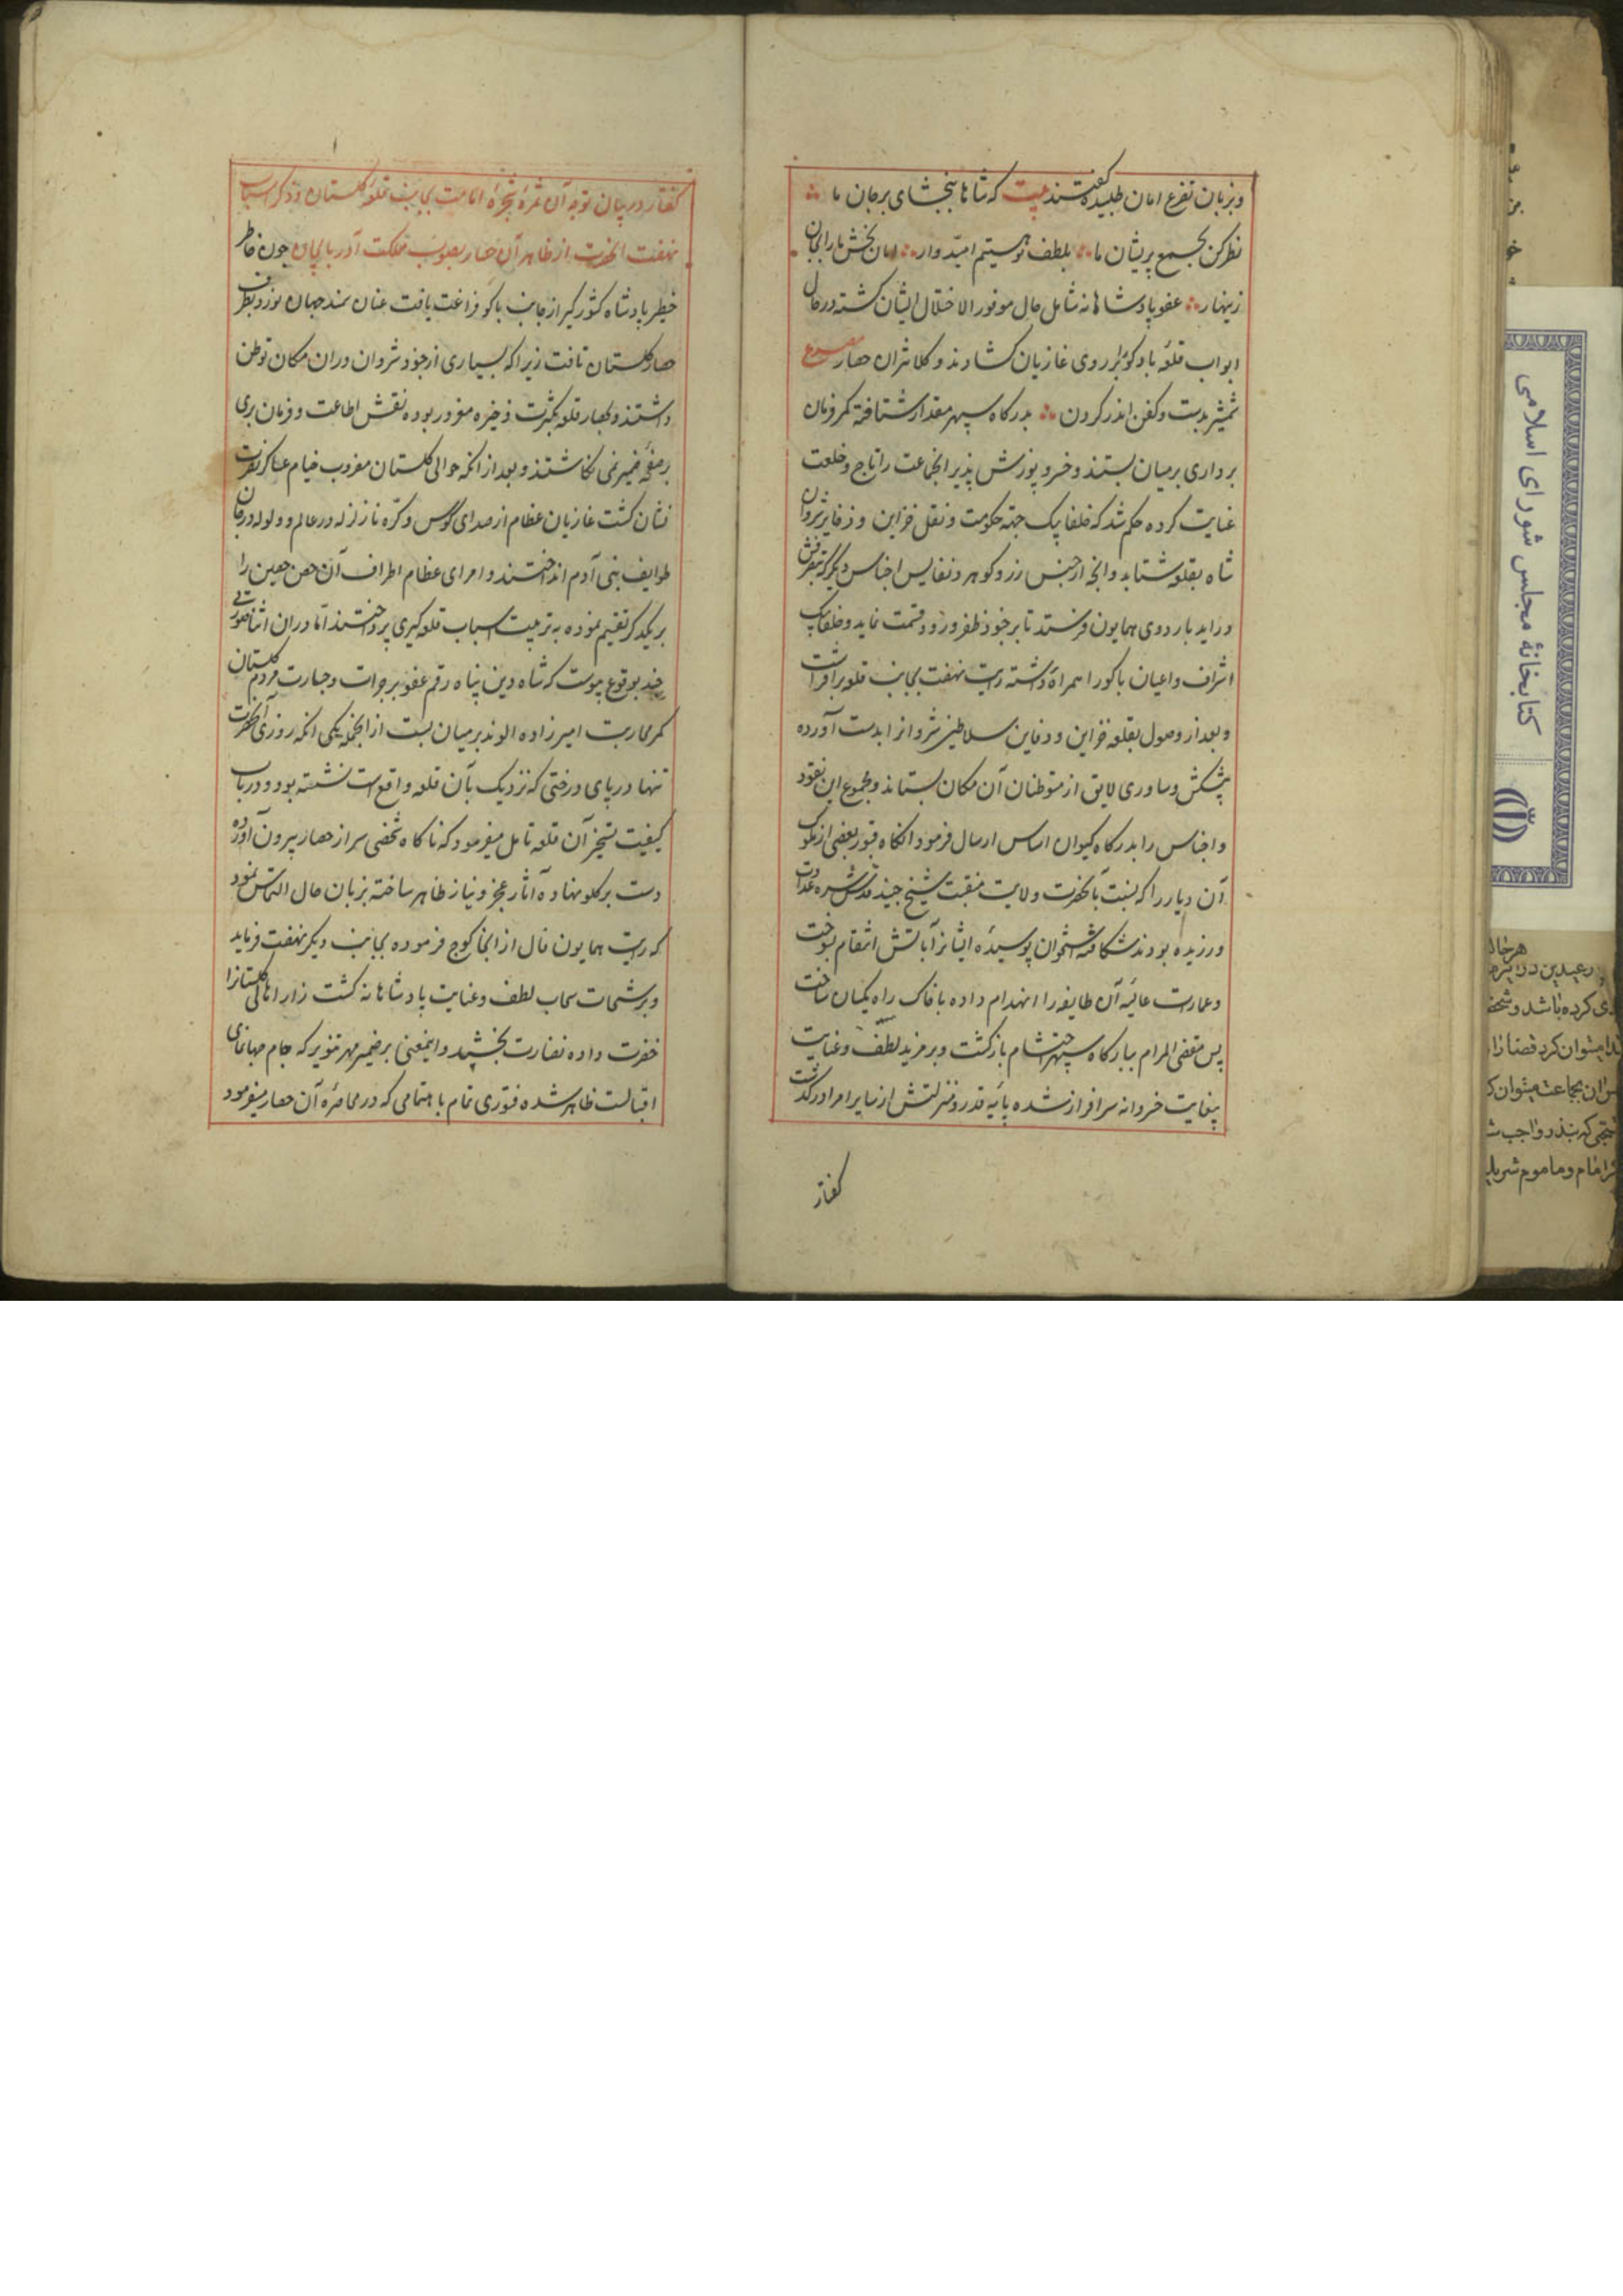 وبزبان تضرع امان طلبیده گفتند بیت که شاها ببخشای برجان ما
نظر کن بجمع پریشان ما بلطف تو هستیم امیدوار امان بخش ما را بجان
زینهار عفو پادشاهانه شامل حال موفور الاختلال ایشان گشته درحال
ابواب قلعه بادکوبه را بروی غازیان گشادند و کلانتران حصار مصرع
شمشیر بدست وکفن اندر گردن بدرگاه سپهر مقدار شتافته کمر فرمان
برداری برمیان بستند وخسرو پوزش پذیر انجماعت را تاج و خلعت
عنایت کرده حکم شد که خلفا بیک جهة حکومت و نقل خزاین و ذخایر شروان
شاه بقلعه شتابد وانچه از جنس زر و گوهر و نفایس اجناس دیگر
وزاید باردوی همایون فرستد تا بر جنود ظفر ورود قسمت نماید وخلفا بیک
اشراف واعیان باکو را همراه داشته رایت نهضت بجانب قلعه برافراشت
و بعد از وصول بقلعه خزاین و دفاین سلاطین شروانرا بدست آورده
پیشکش وساوری لایق از متوطنان آن مکان بستاند ومجموع این نقود
واجناس را بدرگاه کیوان اساس ارسال فرمود انگاه قبور بعضی از ملوک
آن دیار را که نسبت بآنحضرت ولایت منقبت شیخ جنید قدس سره عداوت
ورزیده بودند شکافته استخوان پوسیده ایشانرا بآتش انتقام بسوخت
وعمارت عالیه آن طایفه را انهدام داده با خاک راه یکسان ساخت
پس مقضی المرام ببارگاه سپهر احتشام بازگشت و بمزید لطف وعنایت
بیغایت خسروانه سرافراز شده پایه قدر ومنزلتش از سایر امرا درگذشت
گفتار
گفتار در بیان توجه آن ثمره شجره امامت بجانب قلعه گلستان وذکر اسباب
نهضت انحضرت از ظاهر آن حصار بصوب مملکت آذربایجان چون خاطر
خطیر پادشاه کشورگیر از جانب باکو فراغت یافت عنان سمند جهان نورد بطرف
حصار گلستان تافت زیرا که بسیاری از جنود شروان دران مکان توطن
داشتند و بحصار قلعه بکثرت ذخیره مغرور بوده نقش اطاعت وفرمان بری
بر صفحه ضمیر نمی نگاشتند و بعد از انکه حوالی گلستان مضرب خیام عساکر نصرت
نشان گشت غازیان عظام از صدای کوس و کره نا زلزله در عالم و ولوله درجان
طوایف بنی آدم انداختند و امرای عظام اطراف آن حصن حصین را
بریکدیگر تقسیم نموده به ترتیب اسباب قلعه گیری پرداختند اما دران اثنا
چند بوقوع پیوست که شاه دین پناه رقم عفو بر جرات وجسارت مردم گلستان
کمر محاربت امیرزاده الوند برمیان بست از انجمله یکی انکه روزی آنحضرت
تنها در پای درختی که نزدیک بآن قلعه واقع است نشسته بود و در باب
کیفیت تسخیر آن قلعه تامل میفرمود که ناگاه شخصی سر از حصار بیرون آورده
دست بر گلو نهاده آثار عجز و نیاز ظاهر ساخته بزبان حال التماس نمود
که رایت همایون فال از انجا کوچ فرموده بجانب دیگر نهضت فرماید
و برشحات سحاب لطف وعنایت پادشاهانه کشت زار اهالی گلستانرا
خضرت داده نضارت بخشید واینمعنی برضمیر مهر تنویر که جام جهانمای
اقبالست ظاهر شده فتوری تمام باهتمامی که درمحاصره آن حصار میفرمود
کتابخانهٔ مجلس شورای اسلامی